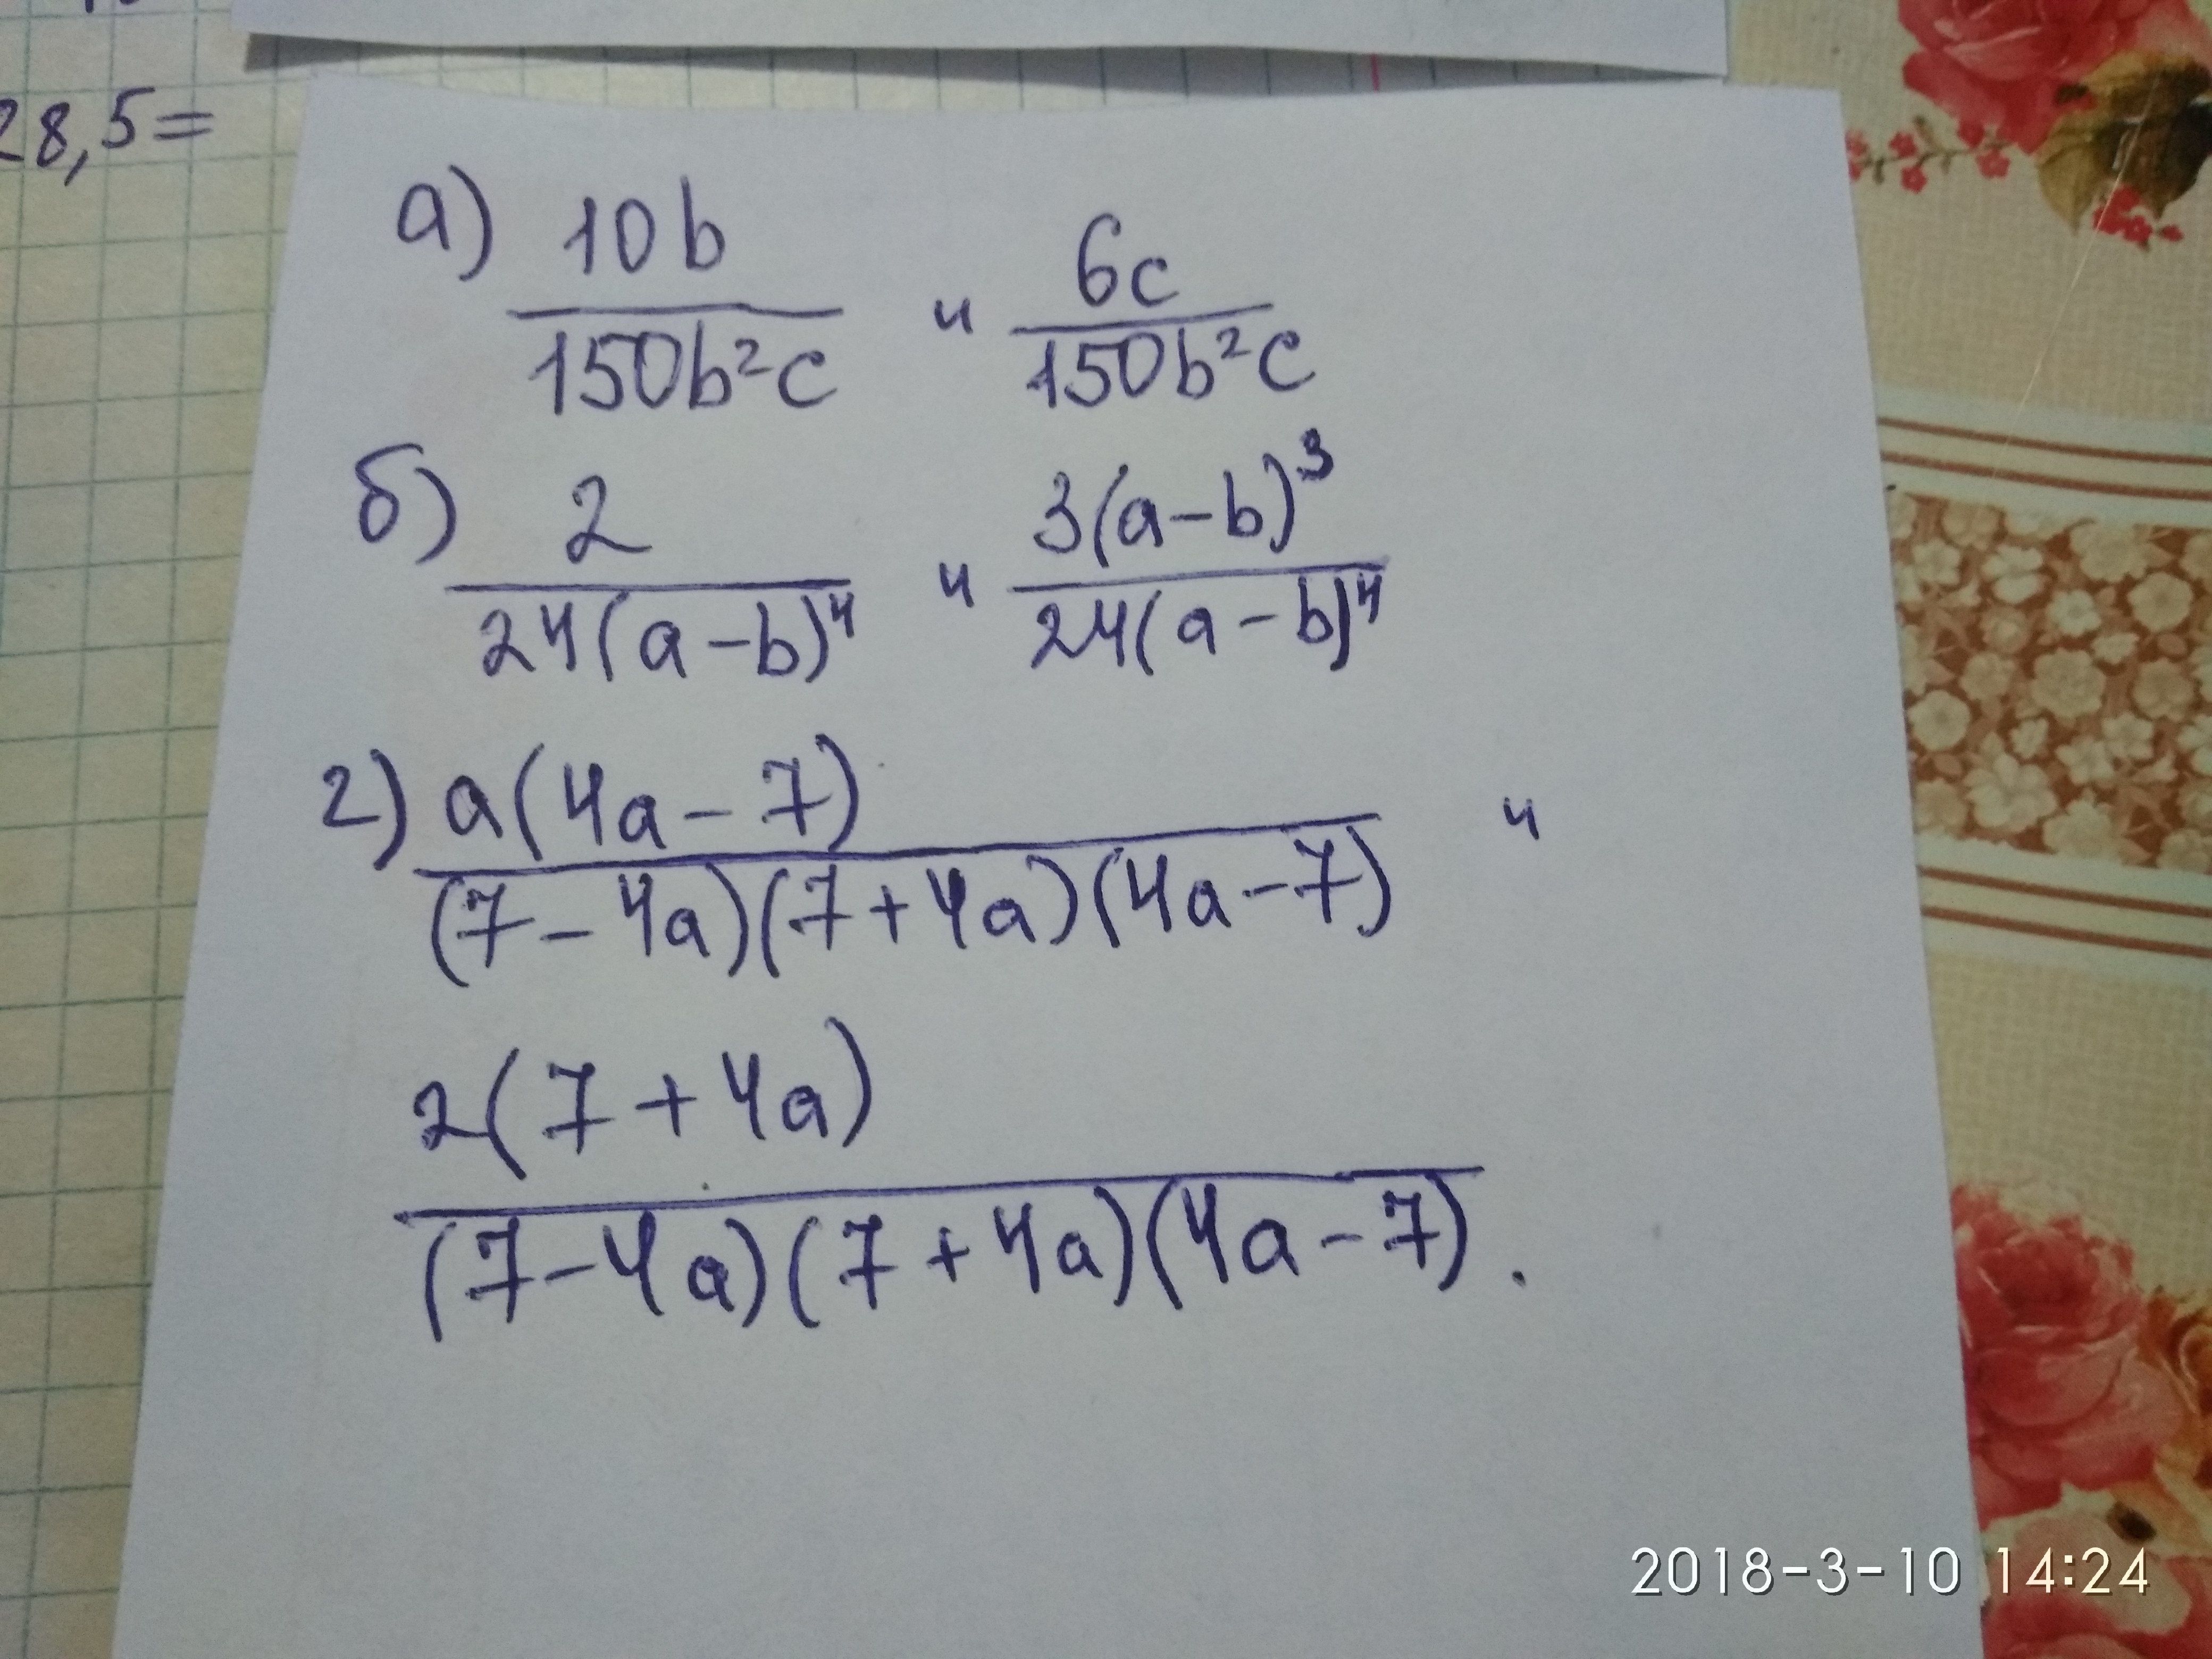 28,5=
а) 10b / 150b²c и 6c / 150b²c
б) 2 / 24(a-b)⁴ и 3(a-b)³ / 24(a-b)⁴
г) a(4a-7) / (7-4a)(7+4a)(4a-7) и
2(7+4a) / (7-4a)(7+4a)(4a-7).
2018-3-10 14:24